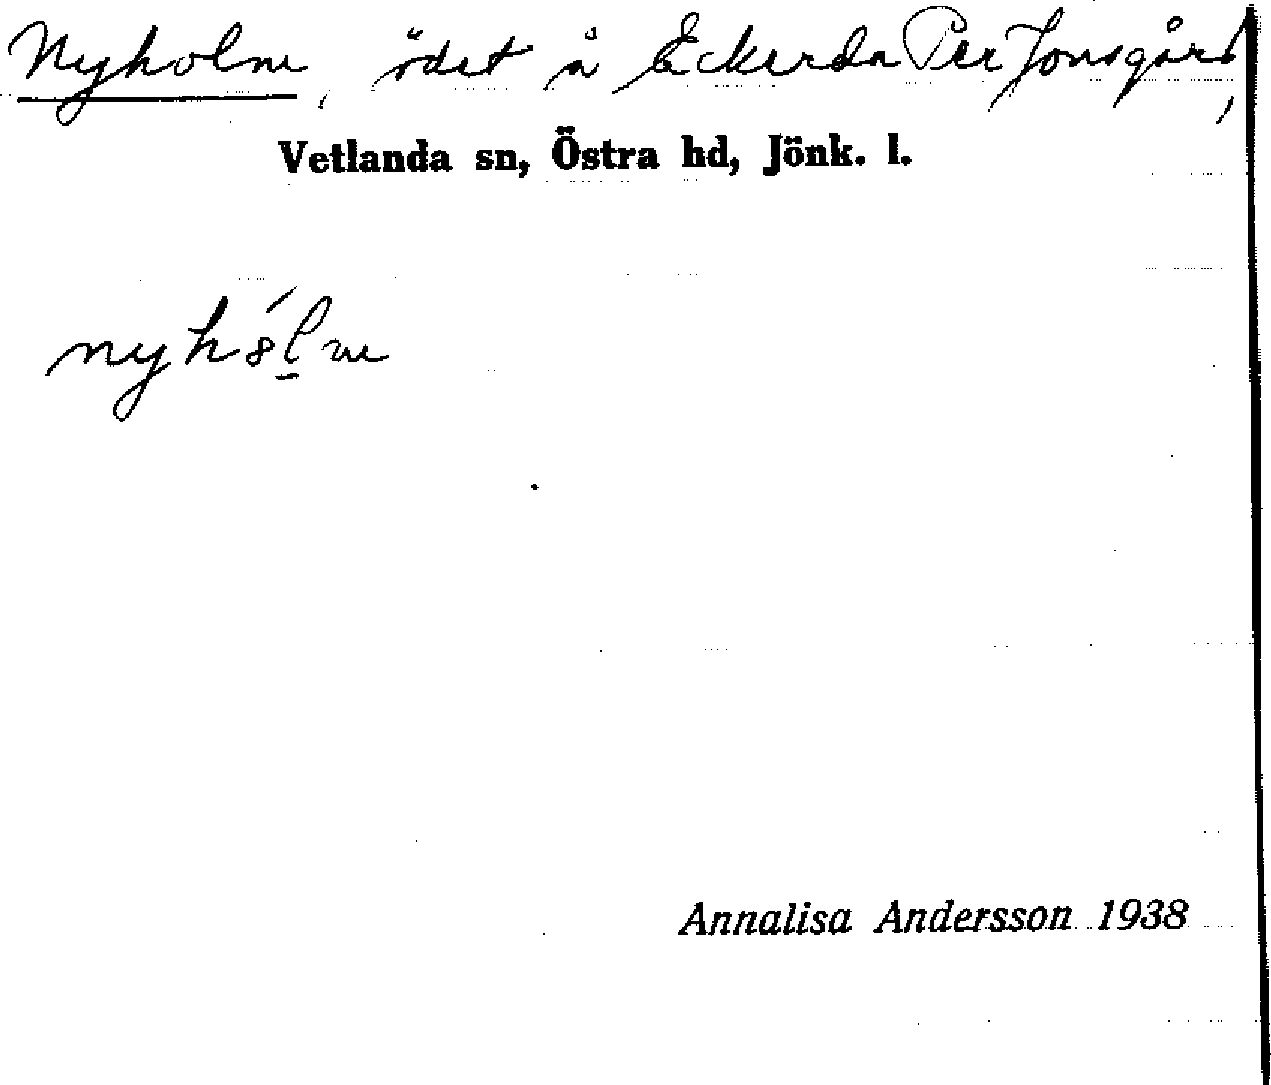 Nyholm, ödet å Eckerda Per Jonsgård,
Vetlanda sn, Östra hd, Jönk. l.
nyhól̲m
Annalisa Andersson 1938